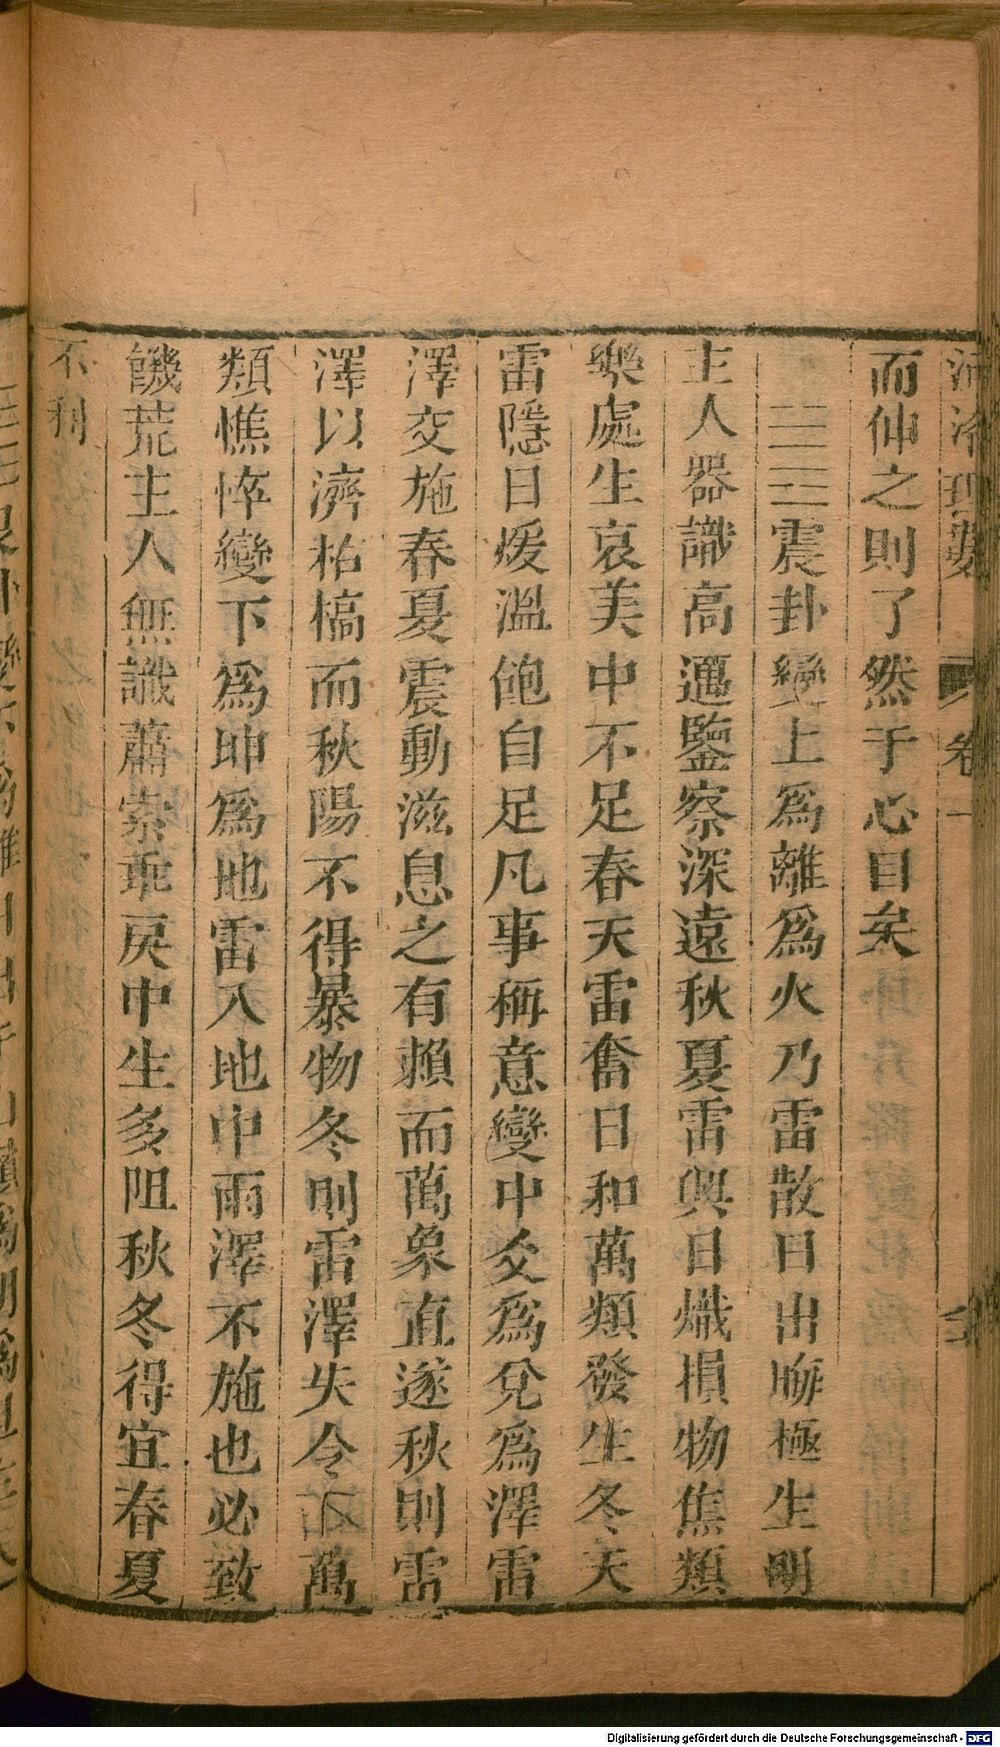 河洛理數 卷一
而伸之則了然于心目矣
☳☳震卦變上爲離爲火乃雷散日出晦極生明
主人器識高邁鑒察深遠秋夏雷興日熾損物焦類
樂處生哀美中不足春天雷奮日和萬類發生冬天
雷隱日煖溫飽自足凡事稱意變中爻爲兌爲澤雷
澤交施春夏震動滋息之有賴而萬象直遂秋則雷
澤以濟枯槁而秋陽不得暴物冬則雷澤失令下萬
類憔悴變下爲坤爲地雷入地中雨澤不施也必致
饑荒主人無識蕭索乖戾中生多阻秋冬得宜春夏
不利
Digitalisierung gefördert durch die Deutsche Forschungsgemeinschaft - DFG